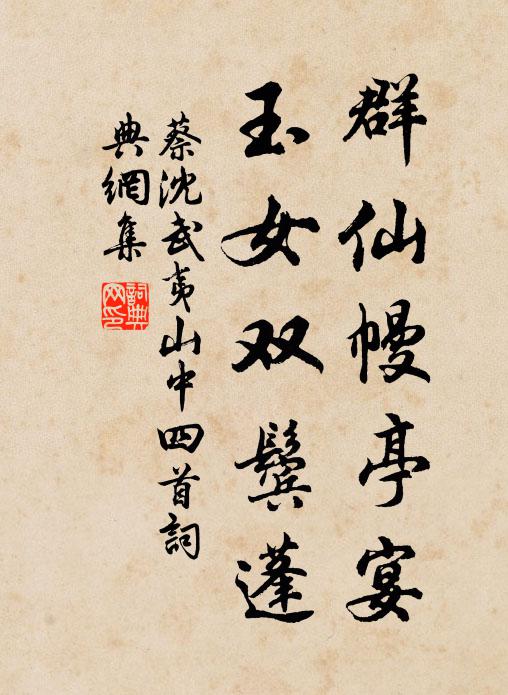 群仙幔亭宴
玉女双鬓蓬
蔡沈武夷山中四首詞
典網集
詞典网印